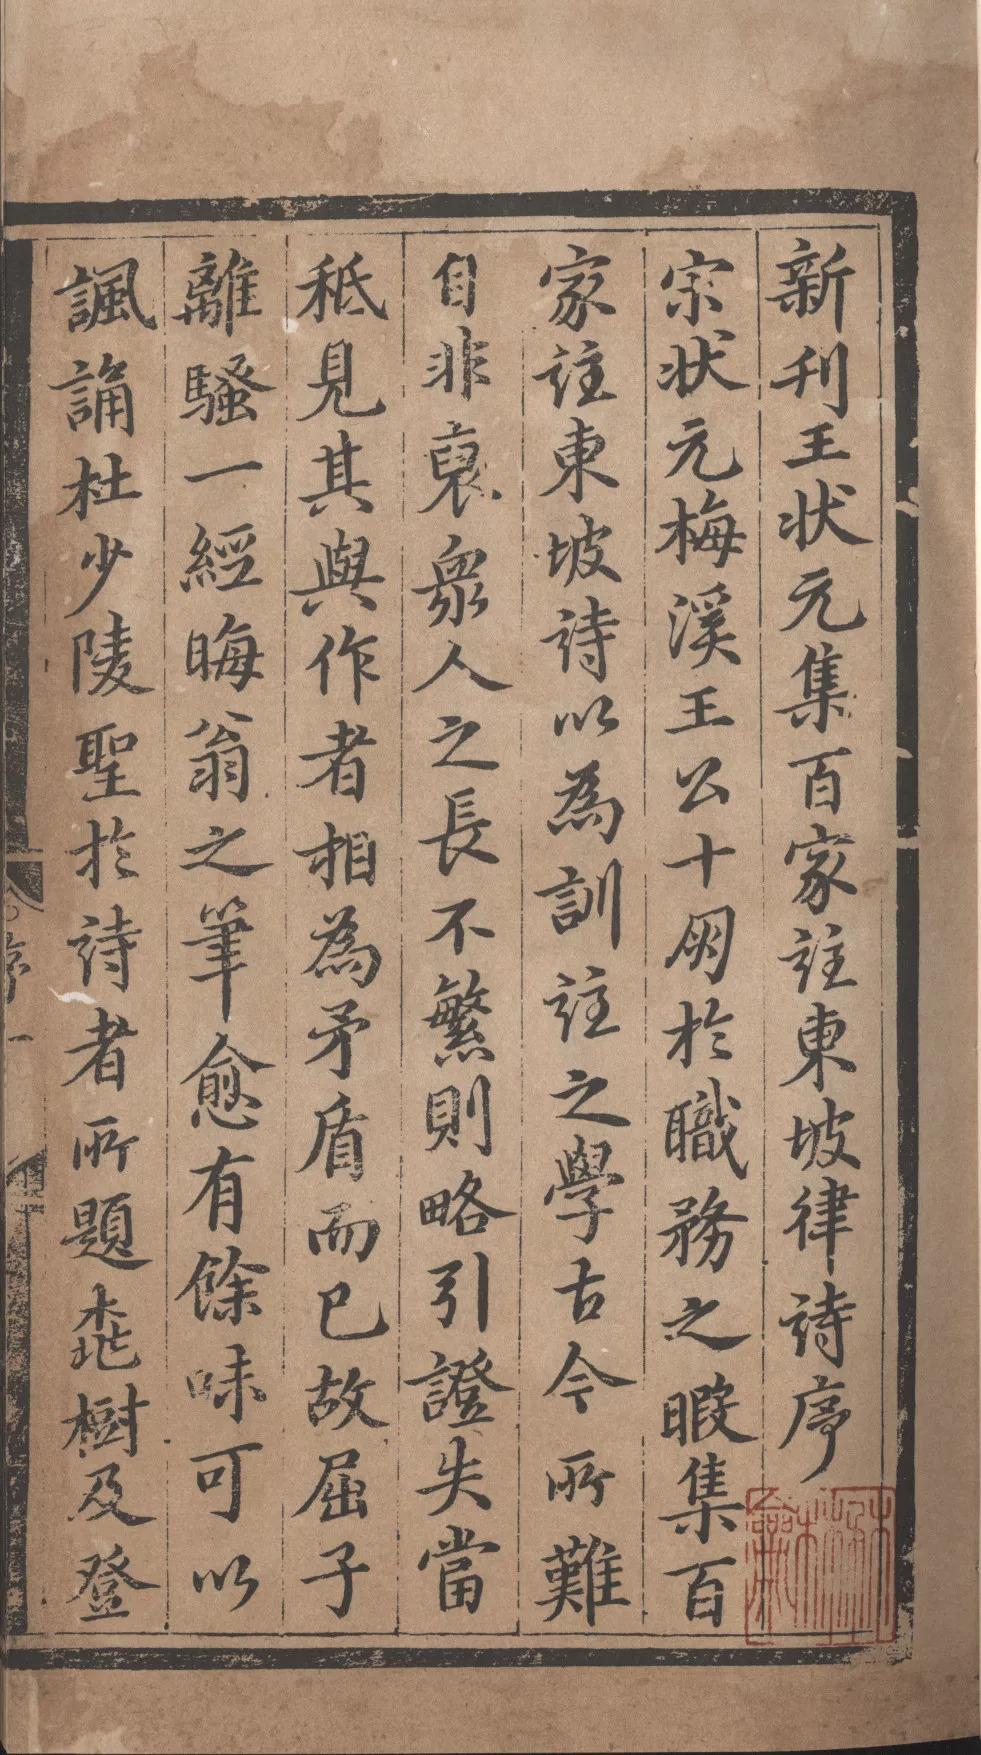 新刊王状元集百家註東坡律詩序
宗状元梅溪王公十朋於職務之暇集百
家註東坡詩以為訓註之學古今所難
自非裒衆人之長不繁則略引證失當
秪見其與作者相為矛盾而已故屈子
離騷一經晦翁之筆愈有餘味可以
諷誦杜少陵聖於詩者所題桃樹及登
序一